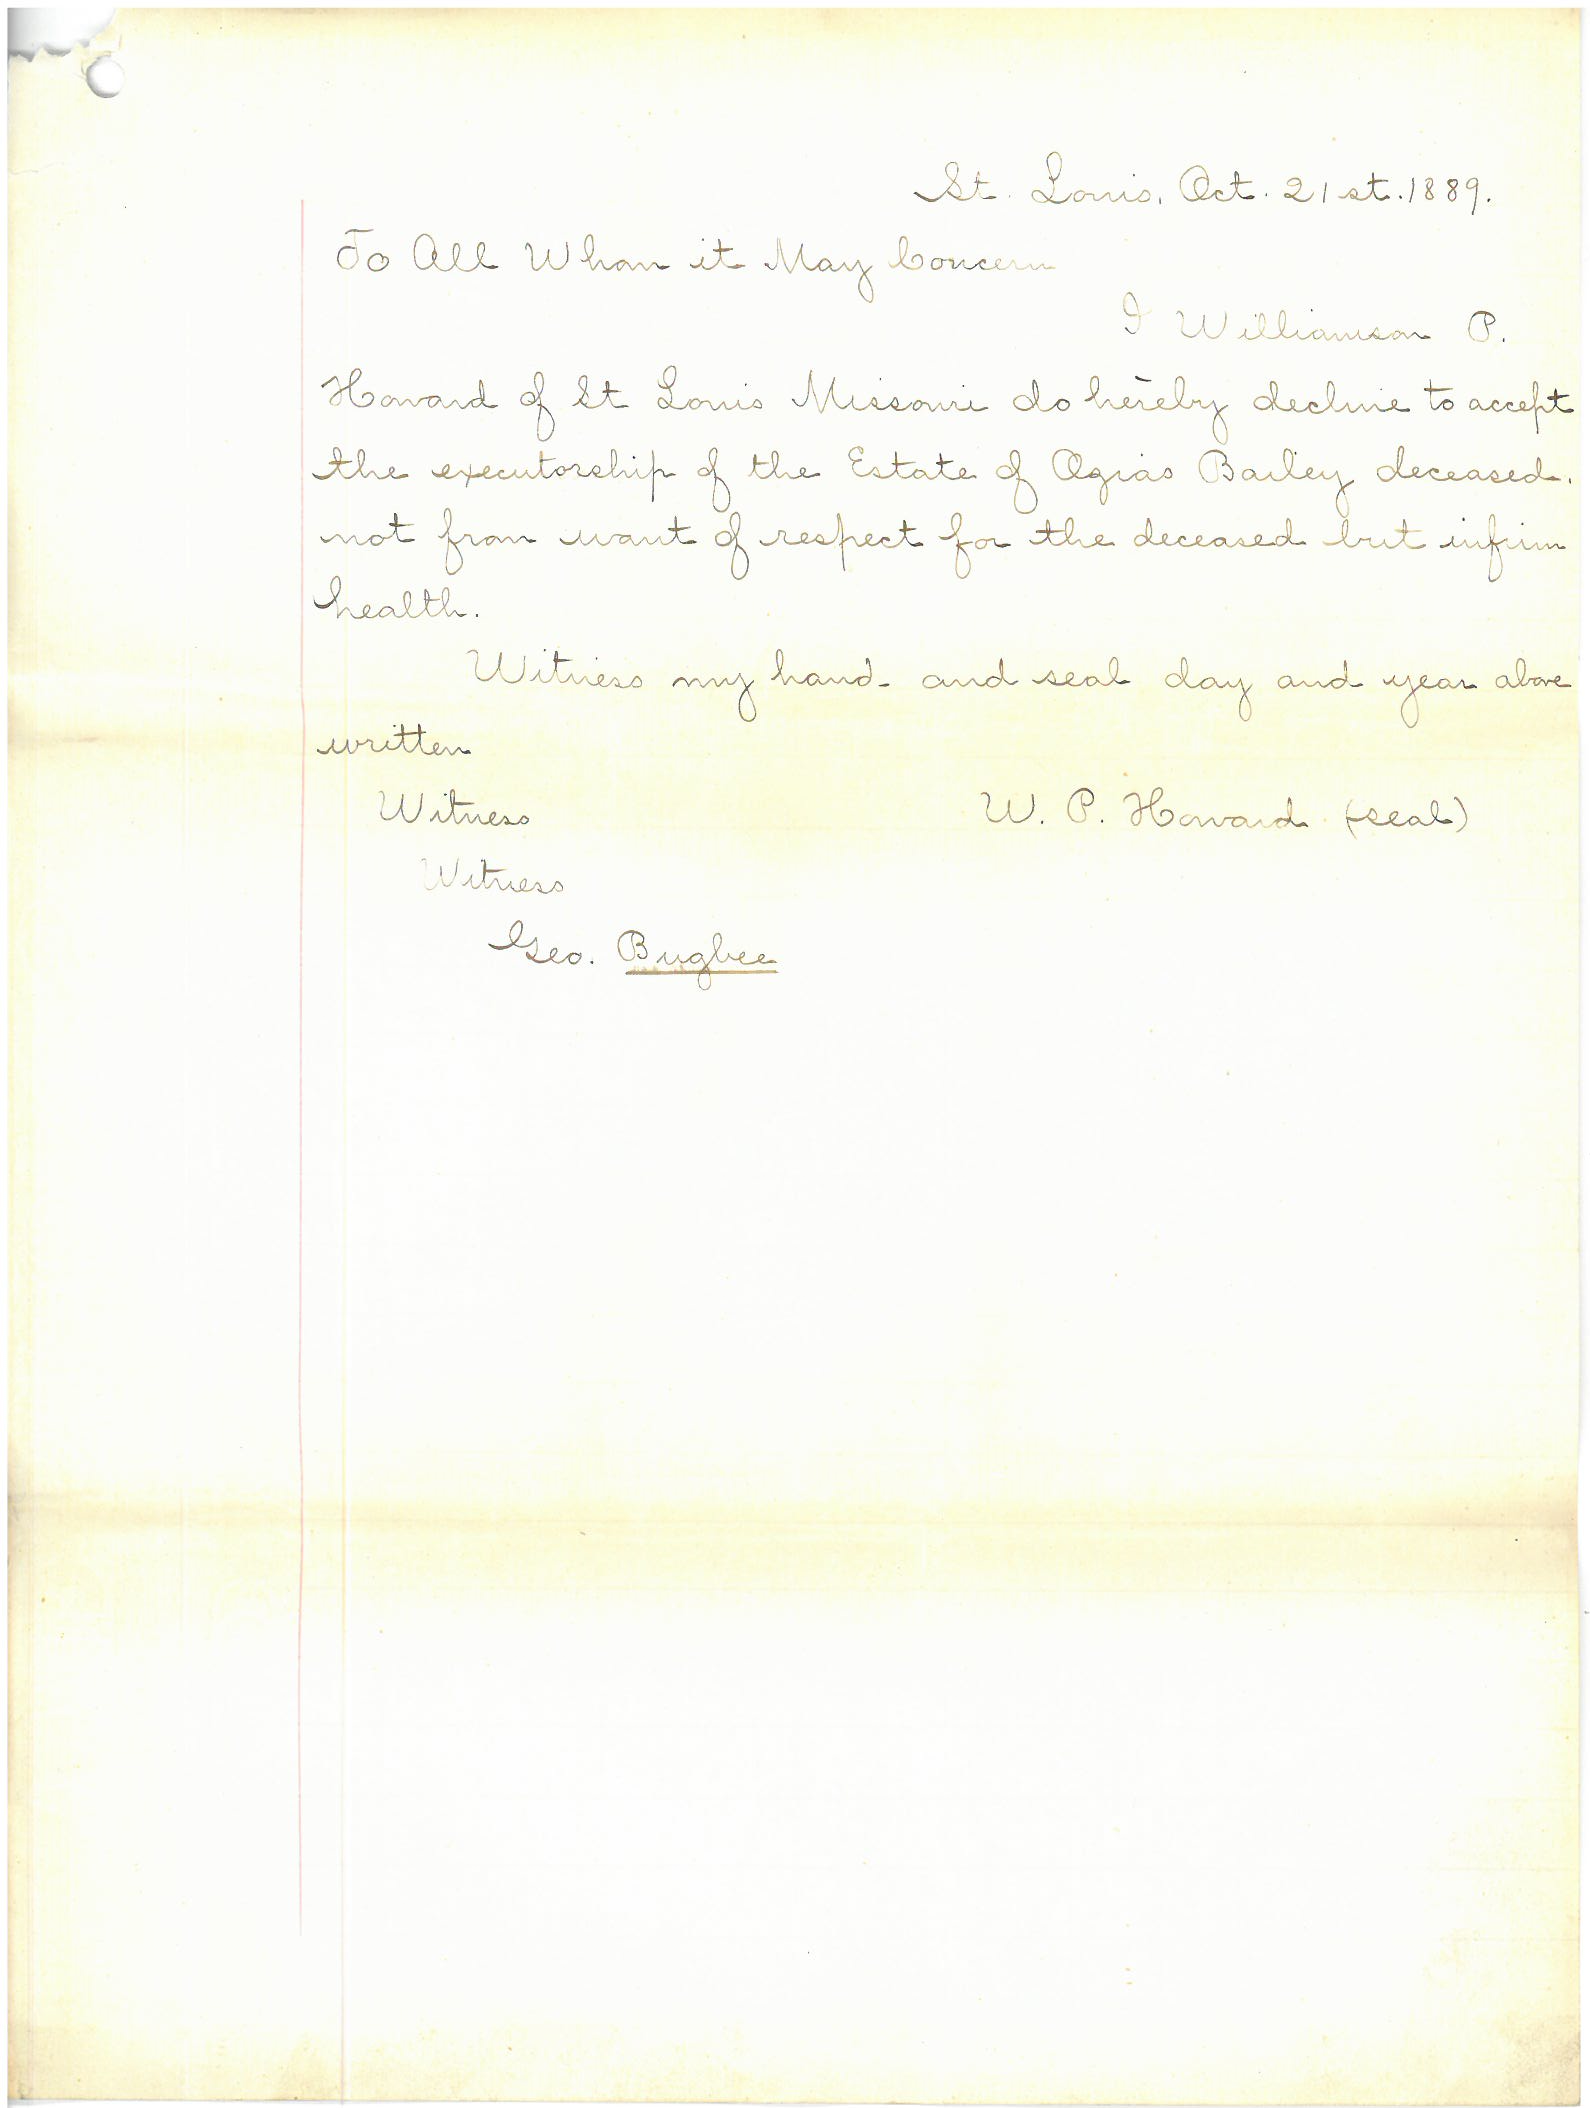 St. Louis, Oct. 21st. 1889.
To All Whom it May Concern
I Williamson P.
Howard of St Louis Missouri do hereby decline to accept
the executorship of the Estate of Ozias Bailey deceased.
not from want of respect for the deceased but infirm
health.
Witness my hand and seal day and year above
written
Witness W. P. Howard (seal)
Witness
Geo. Bugbee